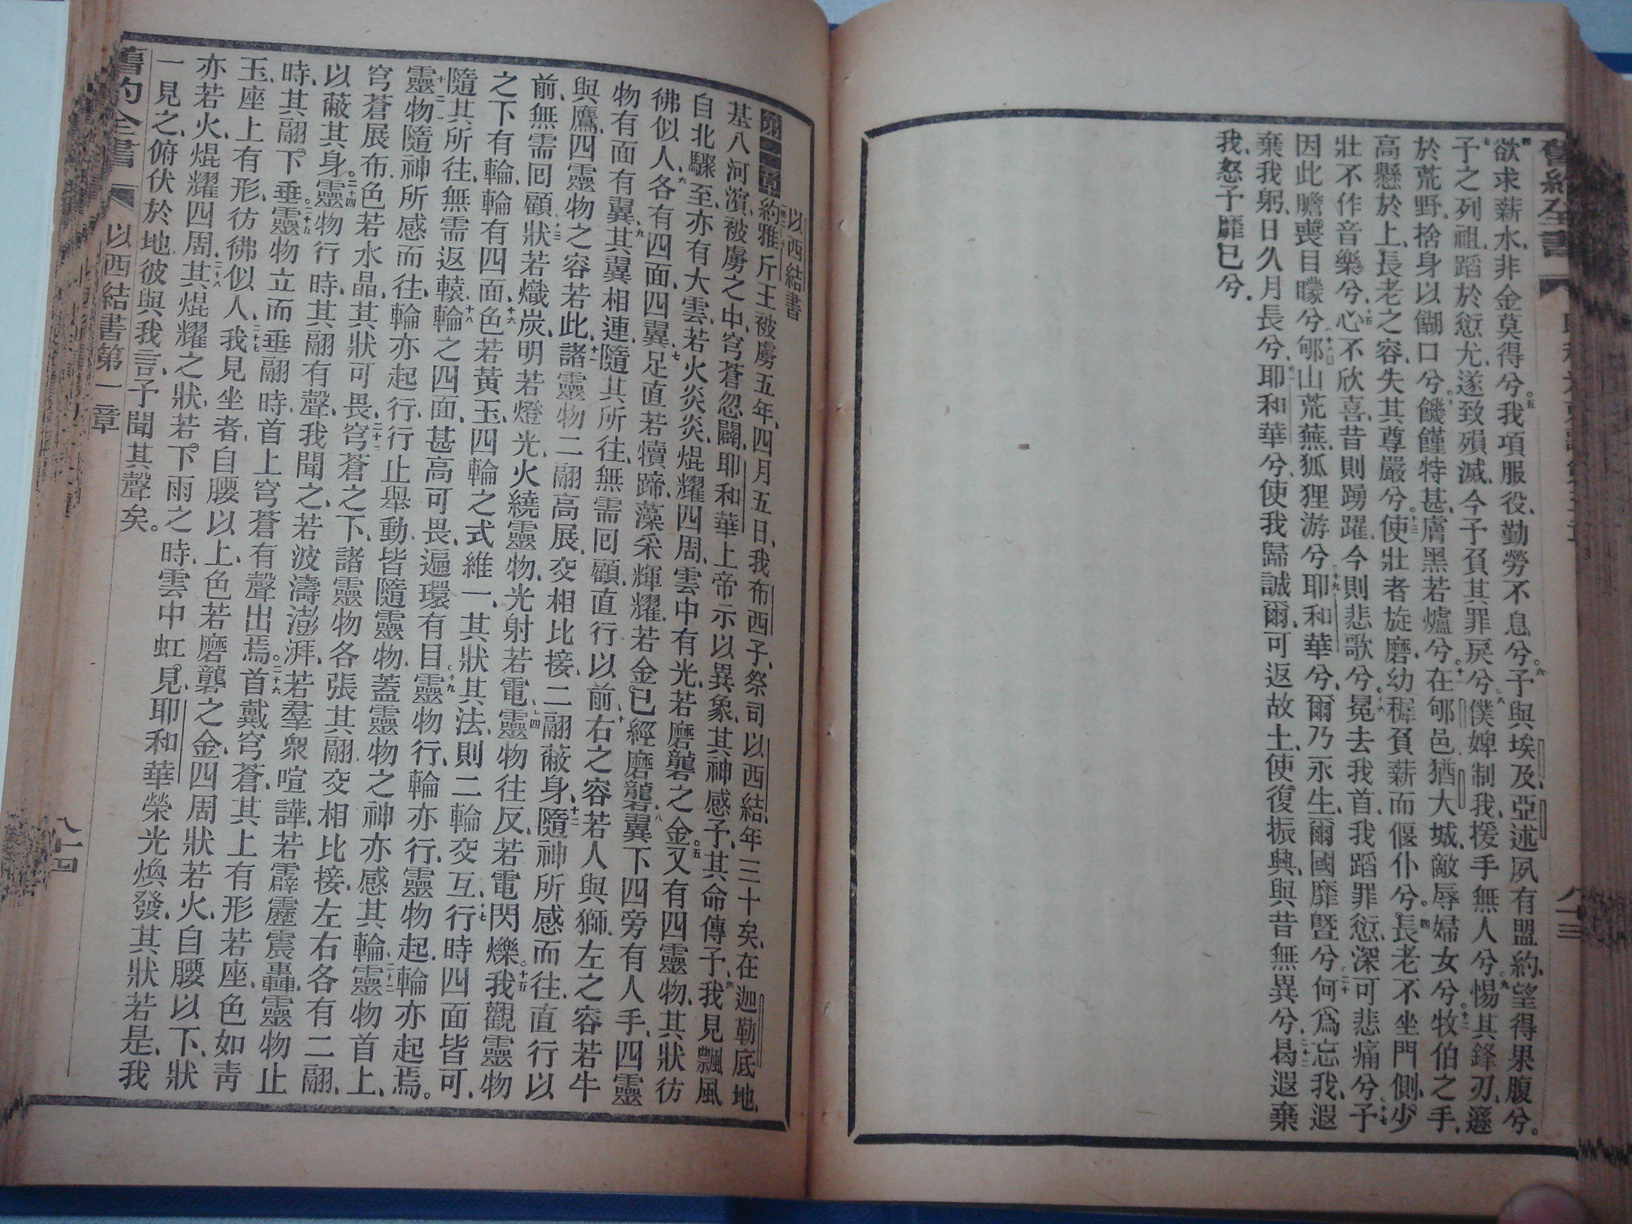 舊約全書
欲求薪水、非金莫得兮、五我項服役、勤勞不息兮、六予與埃及、亞述、夙有盟約、望得果腹兮。
七子之列祖、蹈於愆尤、遂致殞滅、今予負其罪戾兮、八僕婢制我、援手無人兮、九惕其鋒刃、遯
於荒野、捨身以餬口兮、十饑饉特甚、膚黑若爐兮、十一在郇邑猶大城、敵辱婦女兮、十二牧伯之手、
高懸於上、長老之容、失其尊嚴兮、十三使壯者旋磨、幼穉負薪而偃仆兮、十四長老不坐門側、少
壯不作音樂兮、十五心不欣喜、昔則踴躍、今則悲歌兮、十六冕去我首、我蹈罪愆、深可悲痛兮、十七予
因此膽喪目矇兮、十八郇山荒蕪、狐狸游兮、十九耶和華兮、爾乃永生、爾國靡曁兮、二十何爲忘我、遐
棄我躬、日久月長兮、二十一耶和華兮、使我歸誠爾、可返故土、使復振興、與昔無異兮、二十二曷遐棄
我、怒予靡已兮。
八十三
以西結書
第一章 約雅斤王被虜五年、四月五日、我布西子、祭司以西結、年三十矣、在迦勒底地、
基八河濱、被虜之中、穹蒼忽闢、耶和華上帝示以異象、其神感予、其命傳予、四我見飄風
自北驟至、亦有大雲、若火炎炎、焜耀四周、雲中有光、若磨礱之金、五又有四靈物、其狀彷
彿似人、六各有四面四翼、七足直若犢蹄、藻采輝耀、若金已經磨礱、八翼下四旁有人手、四靈
物有面有翼、九其翼相連、隨其所往、無需囘顧、直行以前、十右之容若人與獅、左之容若牛
與鷹、四靈物之容若此、十一諸靈物二翮高展、交相比接、二翮蔽身、十二隨神所感而往、直行以
前、無需囘顧、十三狀若熾炭、明若燈光、火繞靈物、光射若電、十四靈物往反、若電閃爍、十五我觀靈物
之下有輪、輪有四面、十六色若黃玉、四輪之式維一、其狀其法、則二輪交互、十七行時四面皆可、
隨其所往、無需返轅、十八輪之四面、甚高可畏、遍環有目、十九靈物行、輪亦行、靈物起、輪亦起焉。
二十靈物隨神所感而往、輪亦起行、二十一行止舉動、皆隨靈物、蓋靈物之神、亦感其輪、二十二靈物首上、
穹蒼展布、色若水晶、其狀可畏、二十三穹蒼之下、諸靈物各張其翮、交相比接、左右各有二翮、
以蔽其身、二十四靈物行時、其翮有聲、我聞之、若波濤澎湃、若羣衆喧譁、若霹靂震轟、靈物止
時、其翮下垂、二十五靈物立而垂翮時、首上穹蒼有聲出焉、二十六首戴穹蒼、其上有形若座、色如靑
玉、座上有形、彷彿似人、二十七我見坐者、自腰以上、色若磨礱之金、四周狀若火、自腰以下、狀
亦若火、焜耀四周、二十八其焜耀之狀、若下雨之時、雲中虹見、耶和華榮光煥發、其狀若是、我
一見之、俯伏於地、彼與我言、予聞其聲矣。
舊約全書 以西結書第一章 八十四